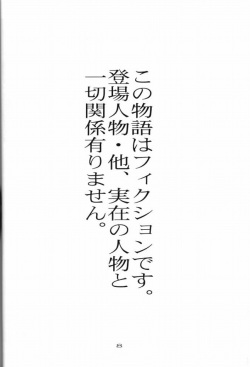 この物語はフィクションです。
登場人物・他、実在の人物と
一切関係有りません。